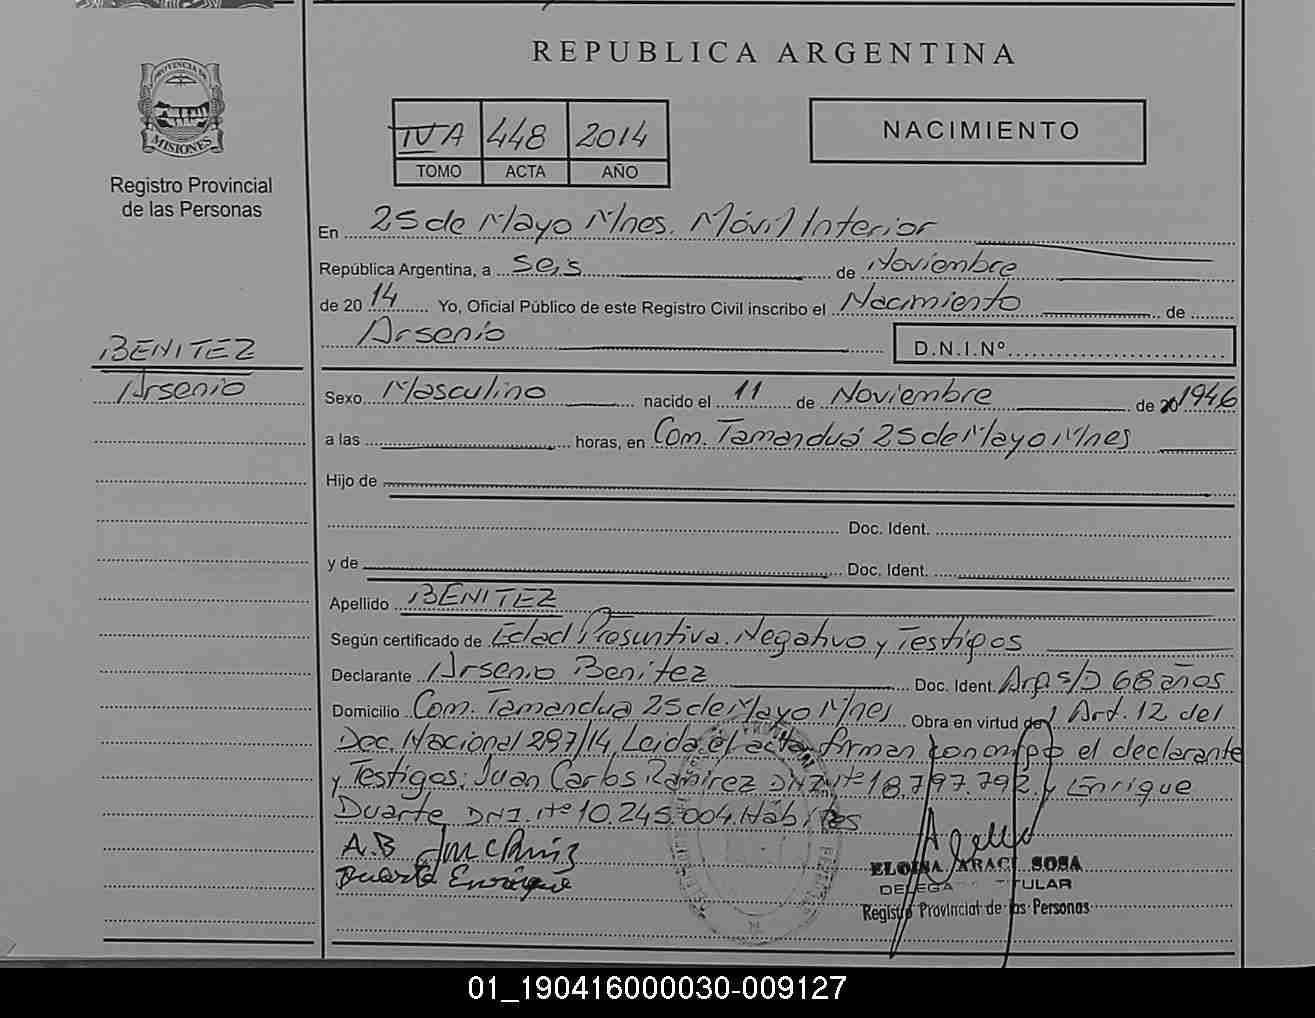 REPUBLICA ARGENTINA
PROVINCIA DE
MISIONES
Registro Provincial
de las Personas
IVA 448 2014
TOMO ACTA AÑO
NACIMIENTO
En 25 de Mayo Mnes. Móvil Interior
República Argentina, a seis de Noviembre
de 2014 Yo, Oficial Público de este Registro Civil inscribo el Nacimiento de
Arsenio D.N.I.Nº
BENITEZ
Arsenio
Sexo Masculino nacido el 11 de Noviembre de 1946
a las horas, en Com. Tamanduá 25 de Mayo Mnes
Hijo de
Doc. Ident.
y de Doc. Ident.
Apellido BENITEZ
Según certificado de Edad Presuntiva. Negativo y Testigos
Declarante Arsenio Benitez Doc. Ident. Arg. s/D 68 años
Domicilio Com. Tamandua 25 de Mayo Mnes Obra en virtud de Art. 12 del
Dec. Nacional 297/14. Leida el acta, firman conmigo el declarante
y Testigos: Juan Carlos Ramirez DNI Nº 18.797.792 y Enrique
Duarte DNI. Nº 10.245.004. Hábiles
A.B
Duarte Enrique
ELOISA ARACI SOSA
DELEGADA TITULAR
Registro Provincial de las Personas
01_190416000030-009127